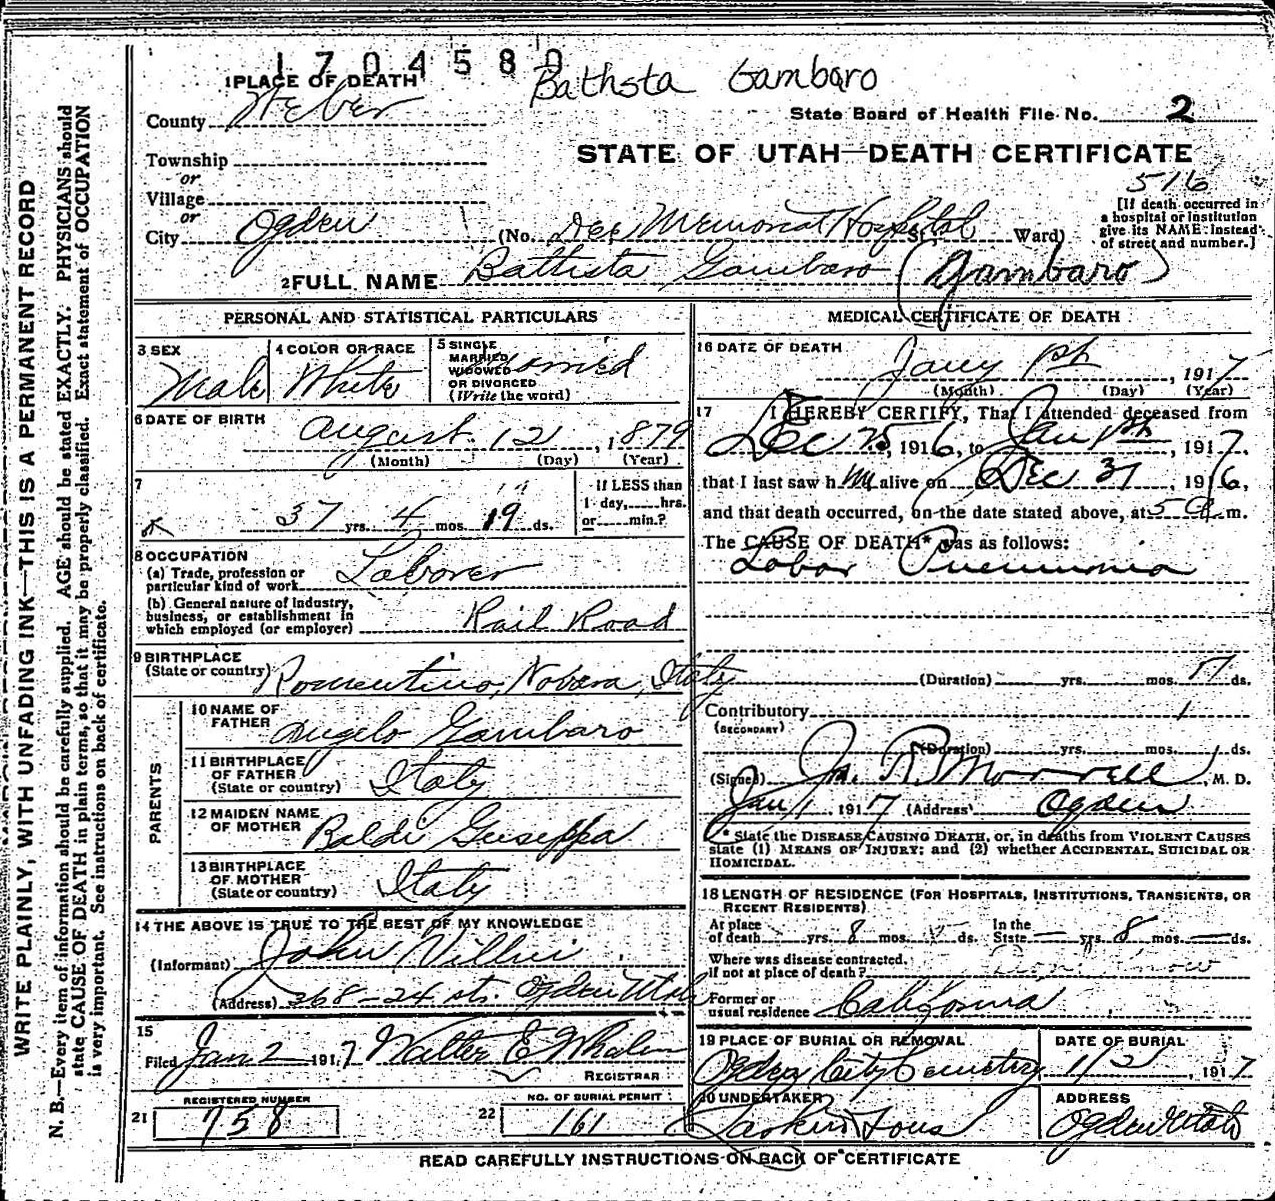 1704580
Battista Gambaro
1 PLACE OF DEATH
County Weber
State Board of Health File No. 2
Township
or
Village
or
City Ogden
STATE OF UTAH—DEATH CERTIFICATE
516
[If death occurred in
a hospital or institution
give its NAME instead
of street and number.]
(No. Dee Memorial Hospital St. Ward)
2 FULL NAME Battista Gambaro (Gambaro)
PERSONAL AND STATISTICAL PARTICULARS
3 SEX
Male
4 COLOR OR RACE
White
5 SINGLE
MARRIED
WIDOWED
OR DIVORCED
(Write the word)
6 DATE OF BIRTH
August 12, 1879
(Month) (Day) (Year)
7
37 yrs. 4 mos. 19 ds.
If LESS than
1 day, hrs.
or min.?
8 OCCUPATION
(a) Trade, profession or
particular kind of work Laborer
(b) General nature of industry,
business, or establishment in
which employed (or employer) Rail Road
9 BIRTHPLACE
(State or country) Romentino, Novara, Italy
PARENTS
10 NAME OF
FATHER Angelo Gambaro
11 BIRTHPLACE
OF FATHER
(State or country) Italy
12 MAIDEN NAME
OF MOTHER Baldi Guseppa
13 BIRTHPLACE
OF MOTHER
(State or country) Italy
14 THE ABOVE IS TRUE TO THE BEST OF MY KNOWLEDGE
(Informant) John
(Address) 268-24 st. Ogden Utah
15
Filed Jan 2 1917 Walter E Whalen
REGISTRAR
21
REGISTERED NUMBER
758
22
NO. OF BURIAL PERMIT
161
MEDICAL CERTIFICATE OF DEATH
16 DATE OF DEATH
Jany 1st, 1917
(Month) (Day) (Year)
17 I HEREBY CERTIFY, That I attended deceased from
Dec 25, 1916, to Jan 1st, 1917,
that I last saw h im alive on Dec 31, 1916,
and that death occurred, on the date stated above, at 5 a m.
The CAUSE OF DEATH* was as follows:
Lobar Pneumonia
(Duration) yrs. mos. ds.
Contributory
(SECONDARY)
(Duration) yrs. mos. ds.
(Signed) Jn. R. Morrell, M. D.
Jan 1 1917 (Address) Ogden
* State the DISEASE CAUSING DEATH, or, in deaths from VIOLENT CAUSES
state (1) MEANS OF INJURY; and (2) whether ACCIDENTAL, SUICIDAL OR
HOMICIDAL.
18 LENGTH OF RESIDENCE (FOR HOSPITALS, INSTITUTIONS, TRANSIENTS, OR
RECENT RESIDENTS)
At place
of death yrs. 8 mos. ds.
In the
State — yrs. 8 mos. — ds.
Where was disease contracted.
if not at place of death? Don't know
Former or
usual residence California
19 PLACE OF BURIAL OR REMOVAL
Ogden City Cemetery
DATE OF BURIAL
1/2, 1917
20 UNDERTAKER
Larkin & Sons
ADDRESS
Ogden Utah
READ CAREFULLY INSTRUCTIONS ON BACK OF CERTIFICATE
WRITE PLAINLY, WITH UNFADING INK—THIS IS A PERMANENT RECORD
N. B.—Every item of information should be carefully supplied. AGE should be stated EXACTLY. PHYSICIANS should
state CAUSE OF DEATH in plain terms, so that it may be properly classified. Exact statement of OCCUPATION
is very important. See instructions on back of certificate.